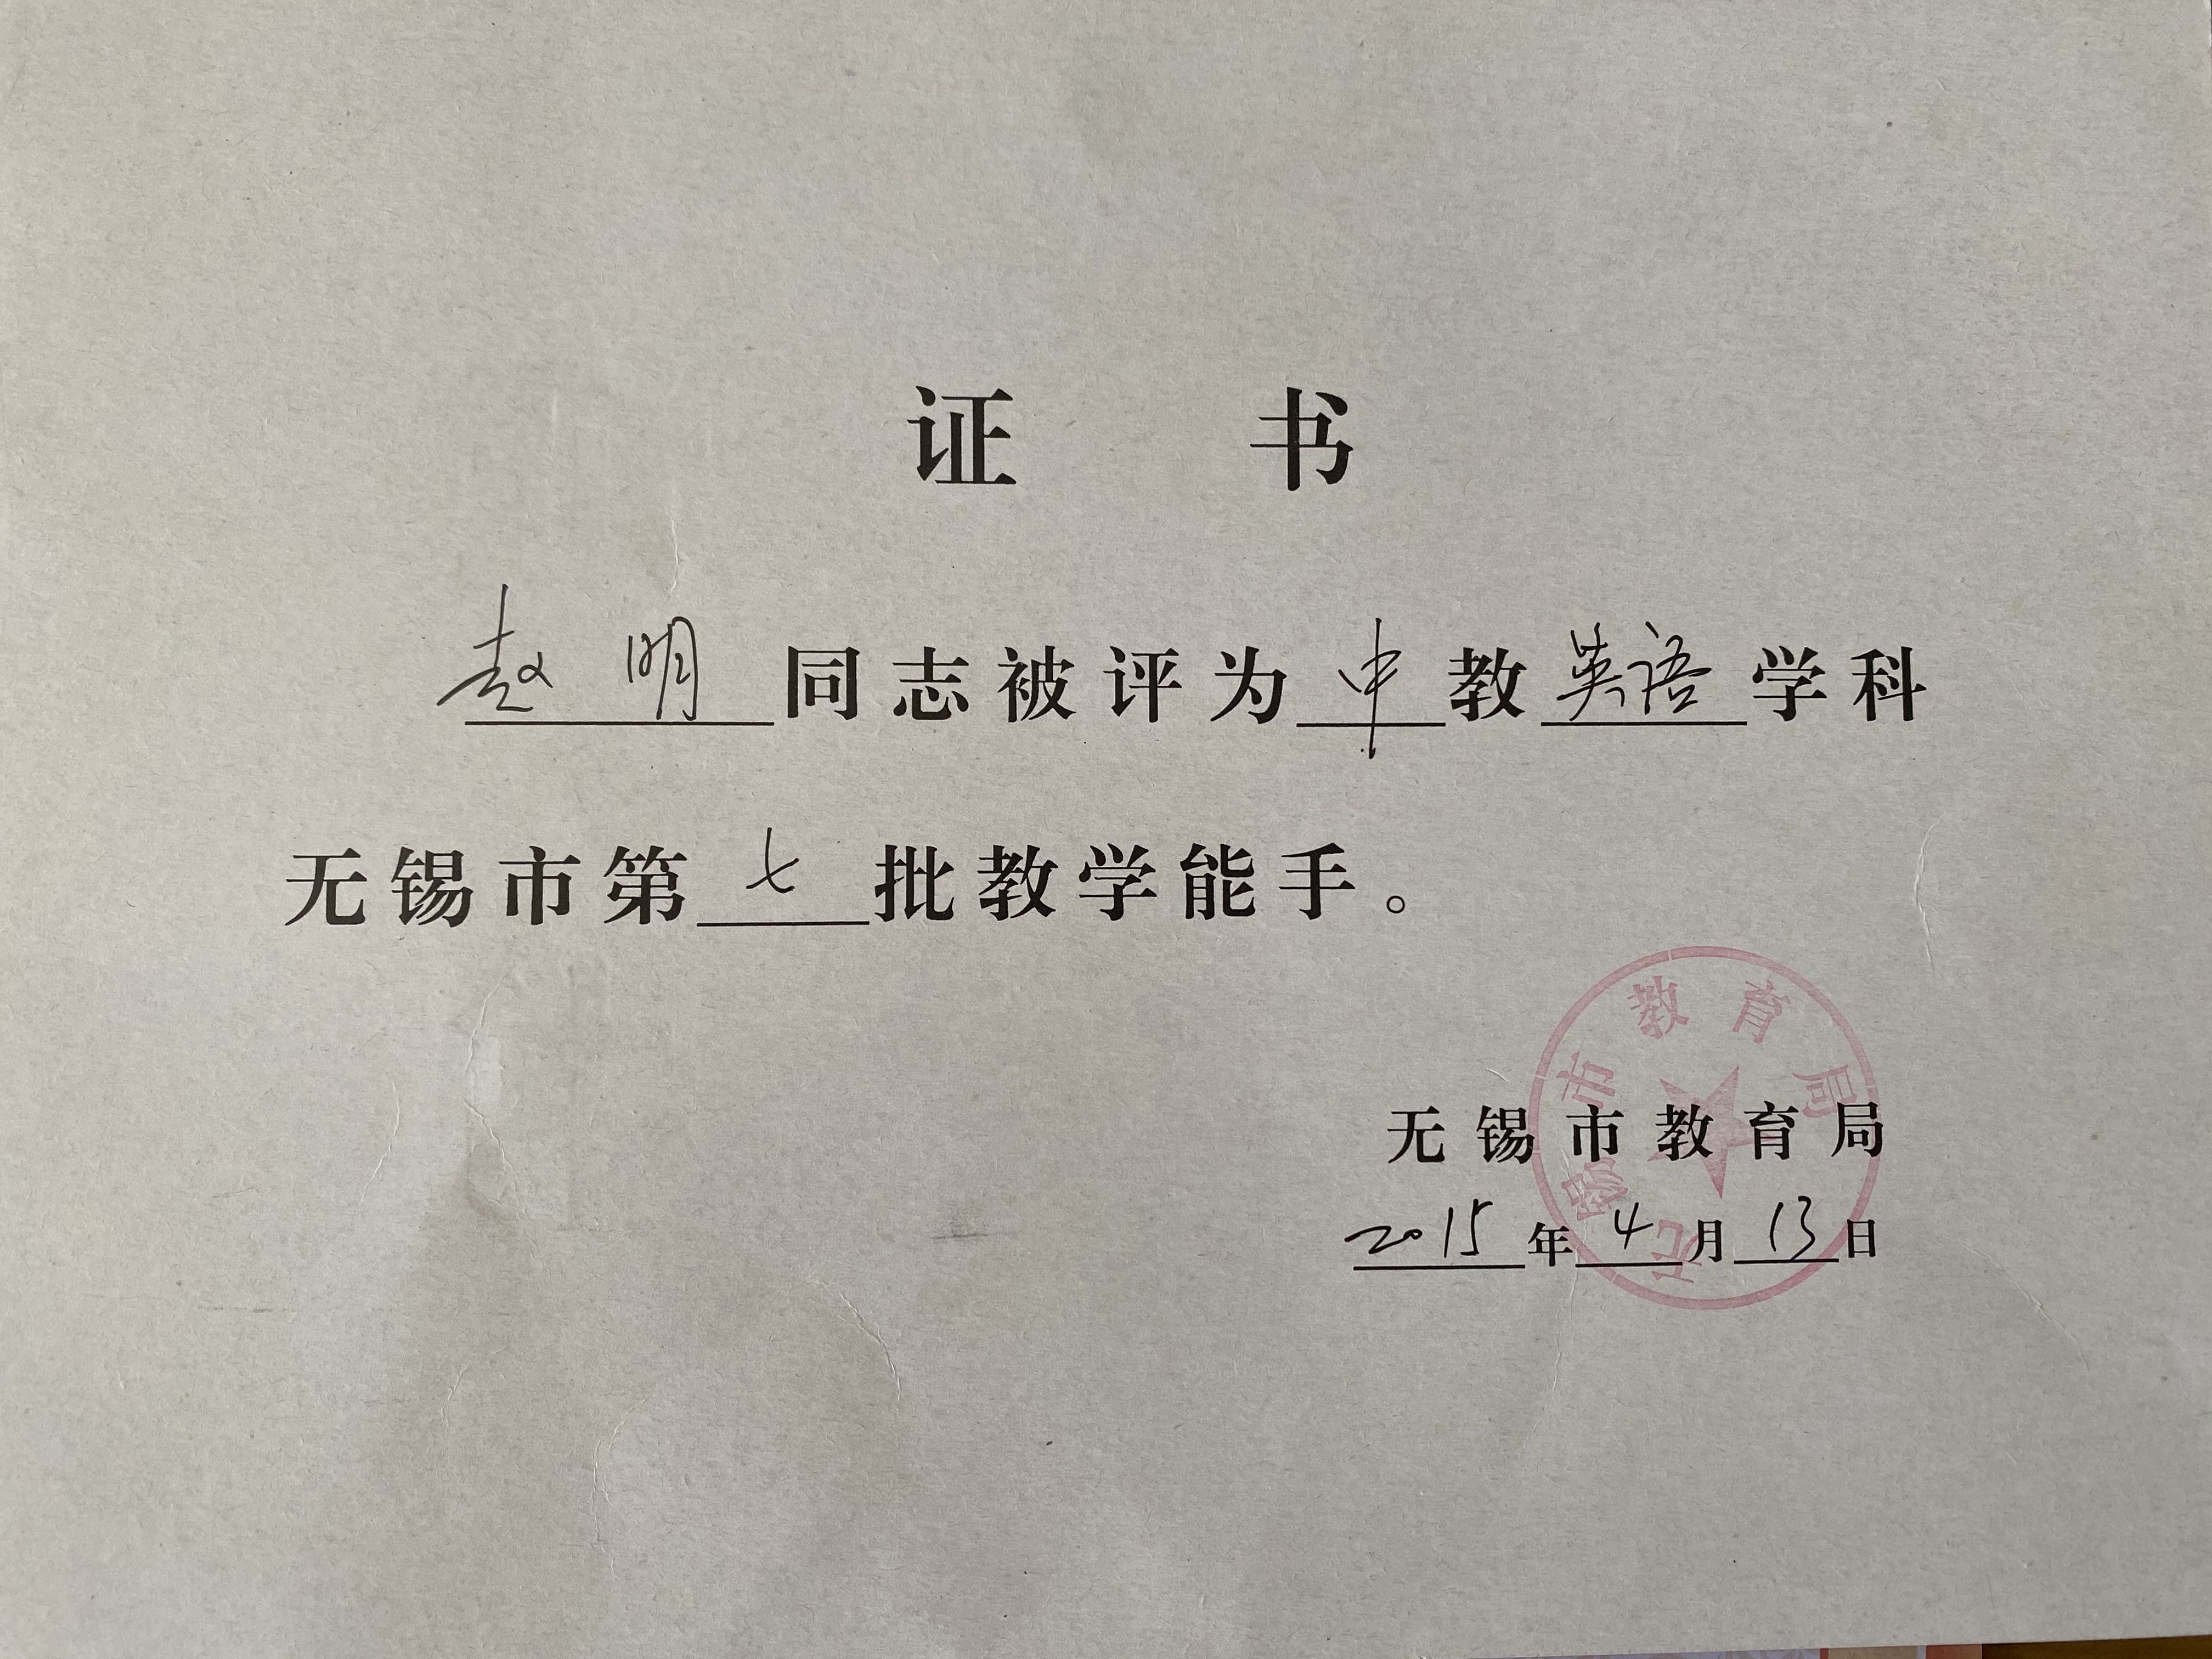 证书
赵明同志被评为中教英语学科
无锡市第七批教学能手。
无锡市教育局
无锡市教育局
2015年4月13日